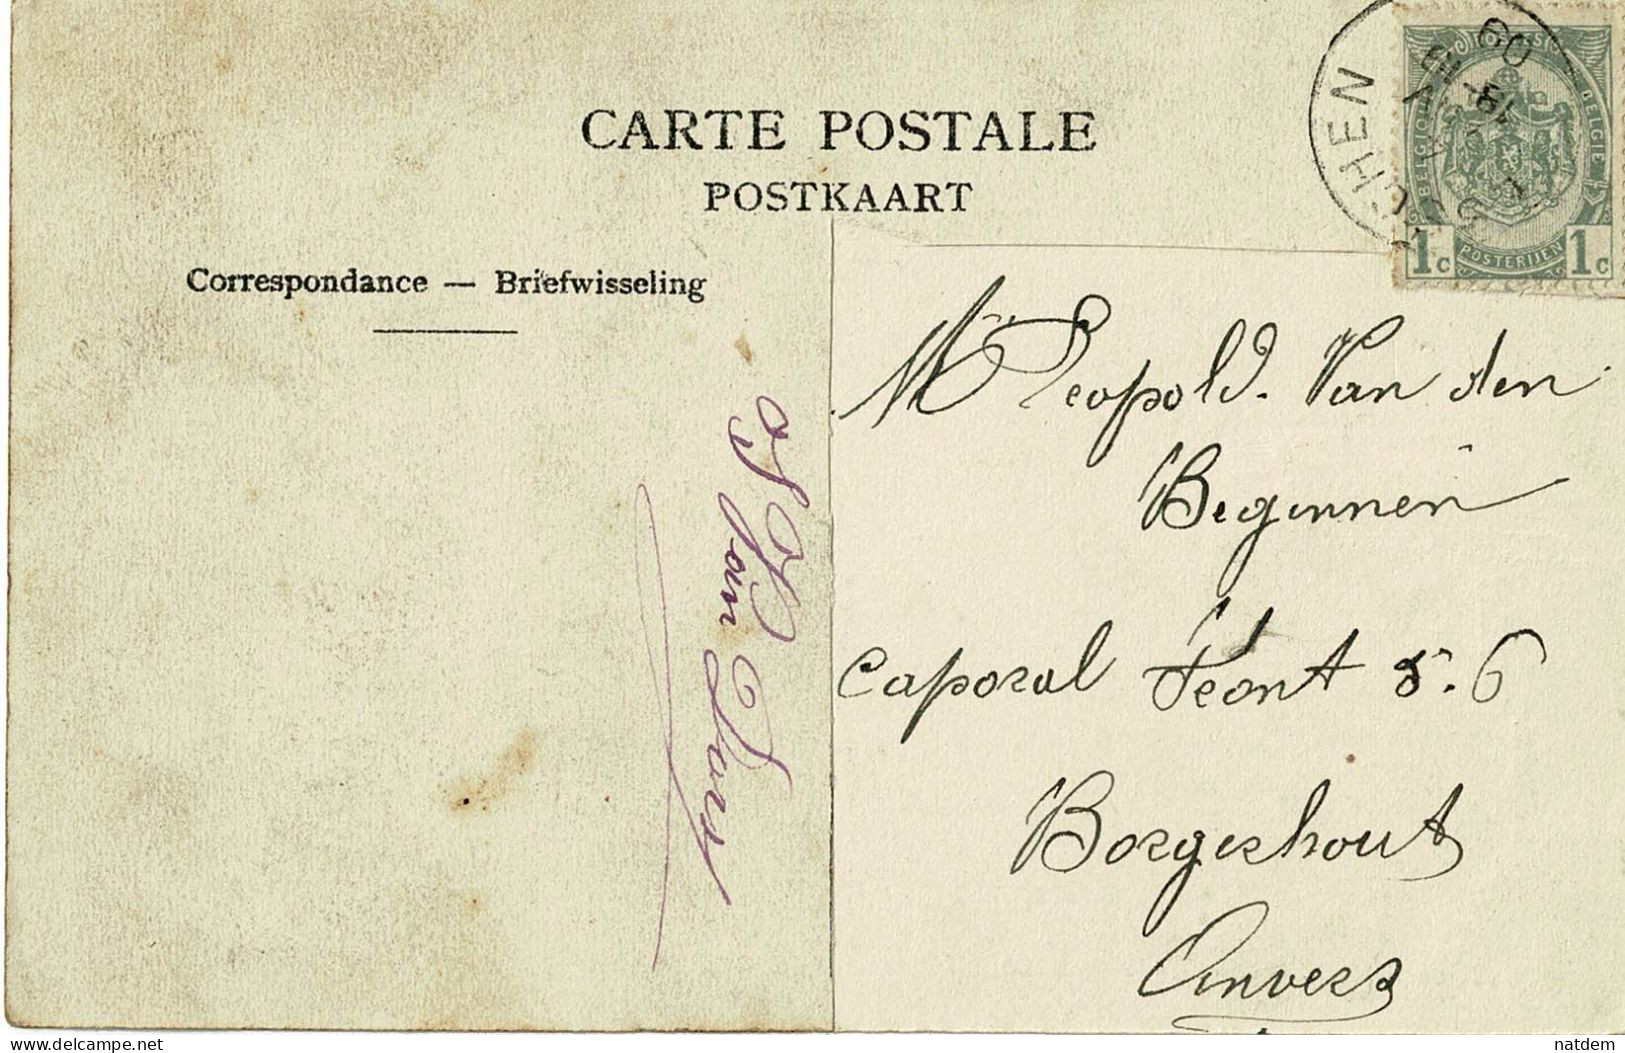 CARTE POSTALE
POSTKAART
Correspondance — Briefwisseling
POSTES
BELGIQUE BELGIE
1c POSTERIJEN 1c
CHEN
09
Mr Leopold. Van den
Beginnen
Caporal Feont 6
Borgerhout
Anvers
delcampe.net
natdem